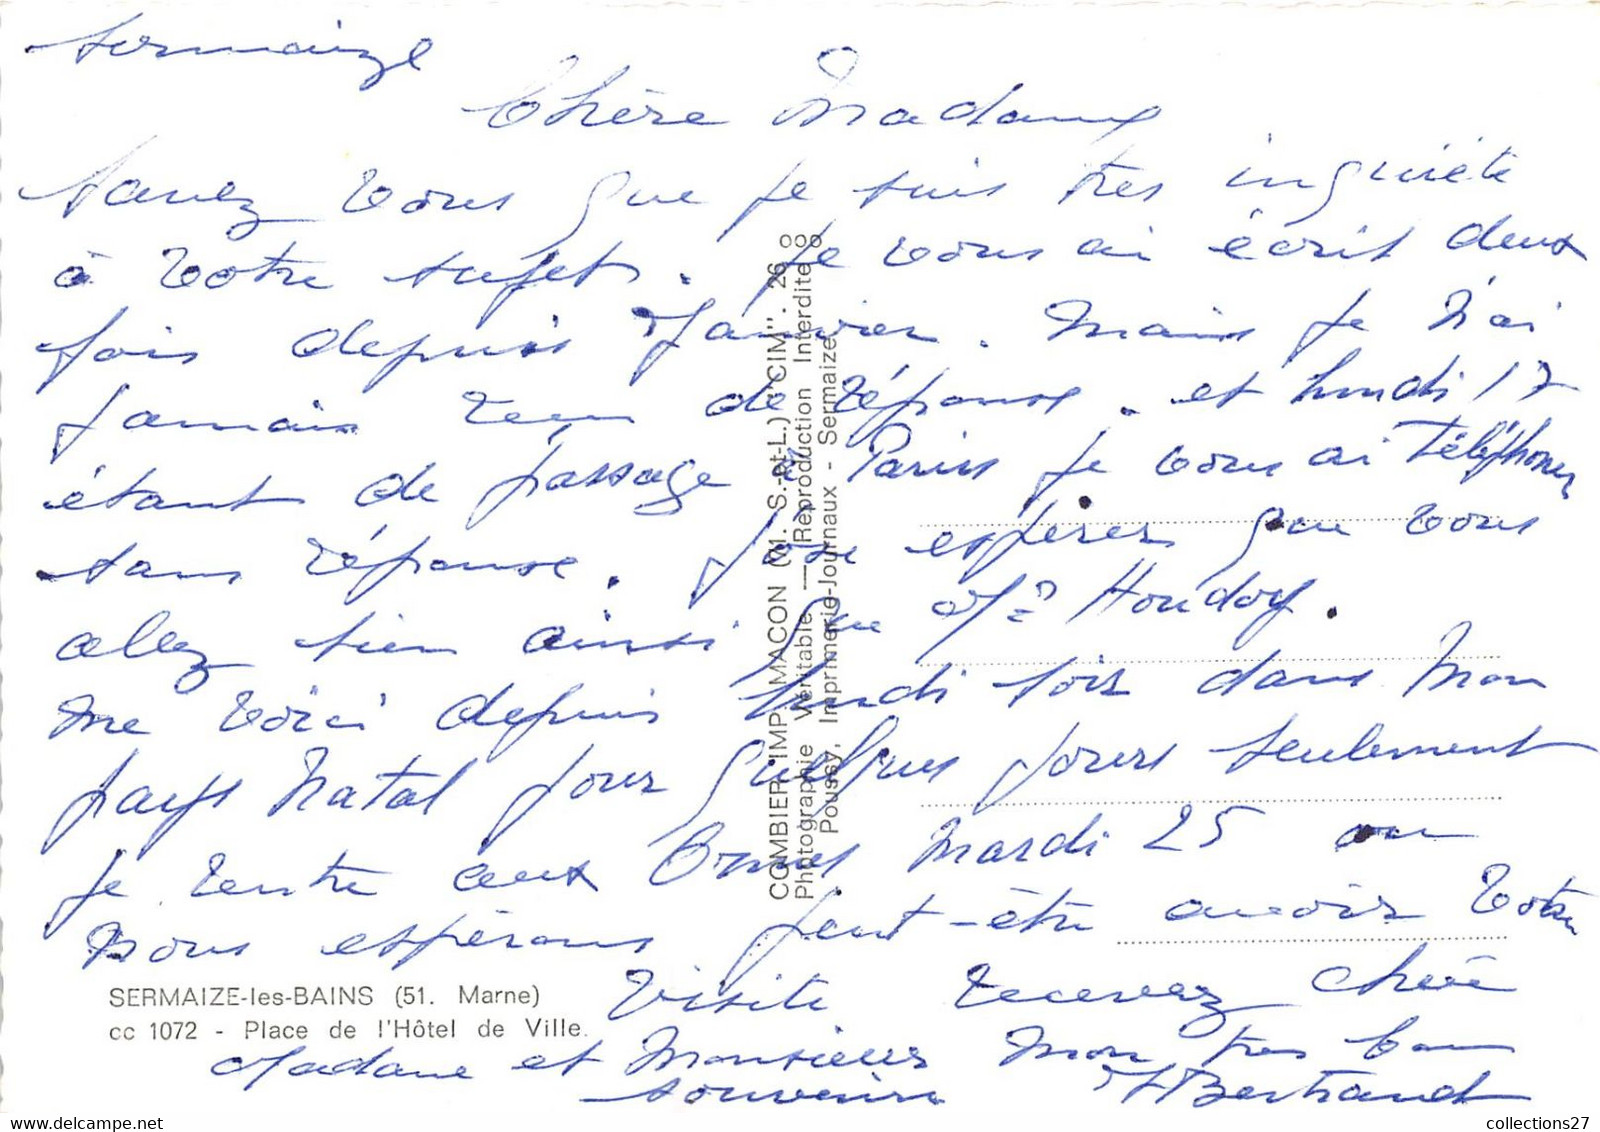 Sermaize
Chère Madame
Savez vous que je suis très inquiète
à votre sujet. Je vous ai écrit deux
fois depuis Janvier. Mais je n'ai
jamais reçu de réponse. et lundi 17
étant de passage à Paris je vous ai téléphoner
sans réponse. J'ose espérer que vous
allez bien ainsi que Mr Houdoy.
Me voici depuis lundi soir dans mon
pays natal pour quelques jours seulement
je rentre aux Ormes mardi 25 ou
nous espérons peut-être avoir votre
visite recevez chère
Madame et Monsieur mon très bon
souvenir Bertrand
COMBIER IMP. MACON (71. S.-et-L.) "CIM". 26
Photographie Véritable — Reproduction Interdite
Poussy, Imprimerie-Journaux - Sermaize
SERMAIZE-les-BAINS (51. Marne)
cc 1072 - Place de l'Hôtel de Ville.
collections27